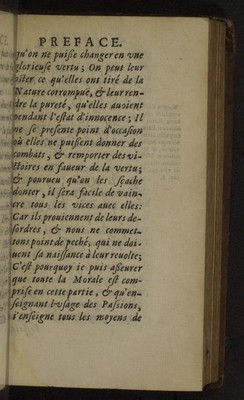 PREFACE.
qu'on ne puisse changer en vne
glorieuse vertu ; On peut leur
oster ce qu'elles ont tiré de la
Nature corrompuë, & leur ren-
dre la pureté, qu'elles auoient
pendant l'estat d'innocence ; Il
ne se presente point d'occasion
où elles ne puissent donner des
combats, & remporter des vi-
ctoires en faueur de la vertu;
& pourueu qu'on les sçache
donter, il sera facile de vain-
cre tous les vices auec elles:
Car ils prouiennent de leurs de-
sordres, & nous ne commet-
tons point de peché, qui ne doi-
uent sa naissance à leur reuolte;
C'est pourquoy ie puis asseurer
que toute la Morale est com-
prise en ceste partie, & qu'en-
seignant l'vsage des Passions,
i'enseigne tous les moyens de